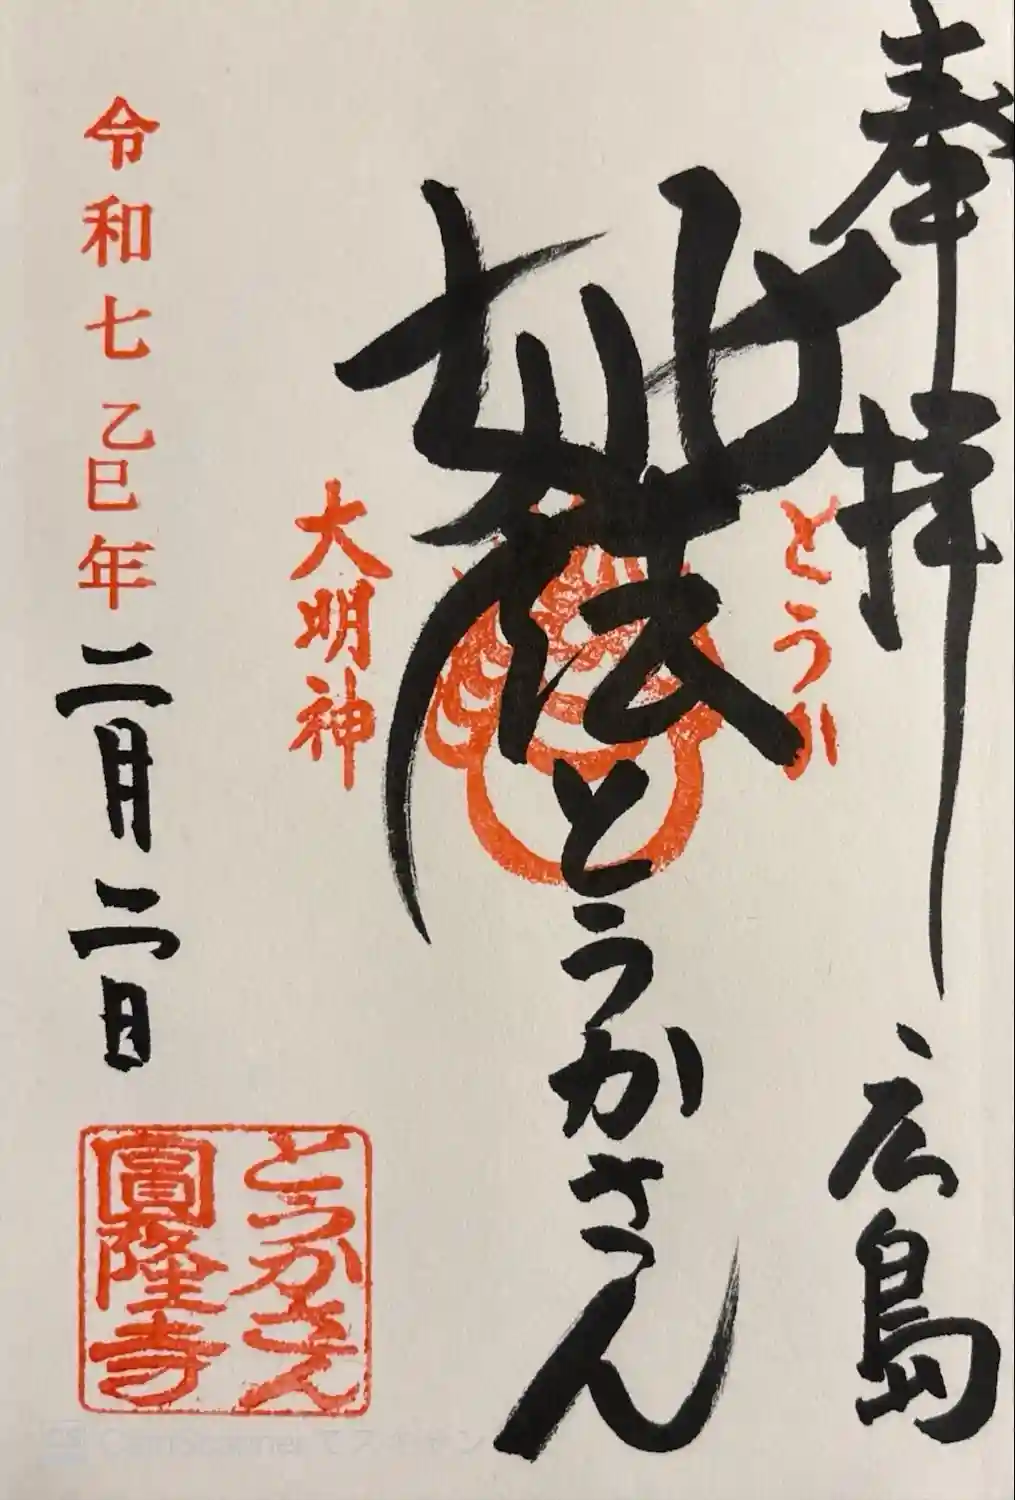 奉拝
広島
妙法
とうかさん
とうか
大明神
令和七乙巳年二月二日
とうかさん
圓隆寺
CS CamScanner でスキャン